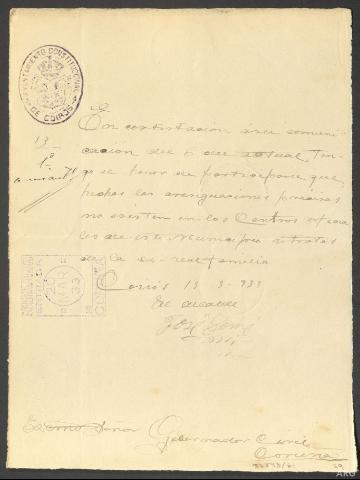 AYUNTAMIENTO CONSTITUCIONAL
DE COIRÓS
En contestación á su comuni-
cación del 6 del actual, ten-
go el honor de participarle que
hechas las averiguaciones precisas
no existen en los Centros oficia-
les de este Municipio retratos
de la ex-real familia
Coirós 13-3-933
El alcalde
José
ENTRADA
20 MAR 33
CORUÑA
Excmo Señor Gobernador Civil
Coruña
ARG